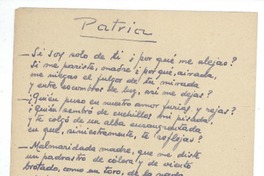 Patria
— Si soy solo de ti ¿por qué me alejas?
Si me pariste, madre ¿por qué, airada,
me niegas el fulgor de tu mirada
y entre escombros de luz, así me dejas?
¿Quién puso en nuestro amor furias y rejas?
¿quién sembró de cuchillos mi pisada?
¿te colgó de un alba ensangrentada
en que, siniestramente, te reflejas?
— Malmaridada madre, que me diste
un padrastro de cólera y de viento
brotado, como un toro, de la nada